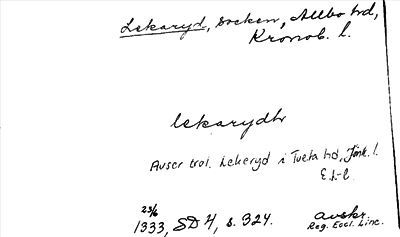 Lekaryd, socken, Allbo hd,
Kronob. l.
lekarydh
Avser trol. Lekeryd i Tveta hd, Jönk. l.
E. L-l
23/6
1333, SD 4, s. 324.
avskr.
Reg. Eccl. Linc.